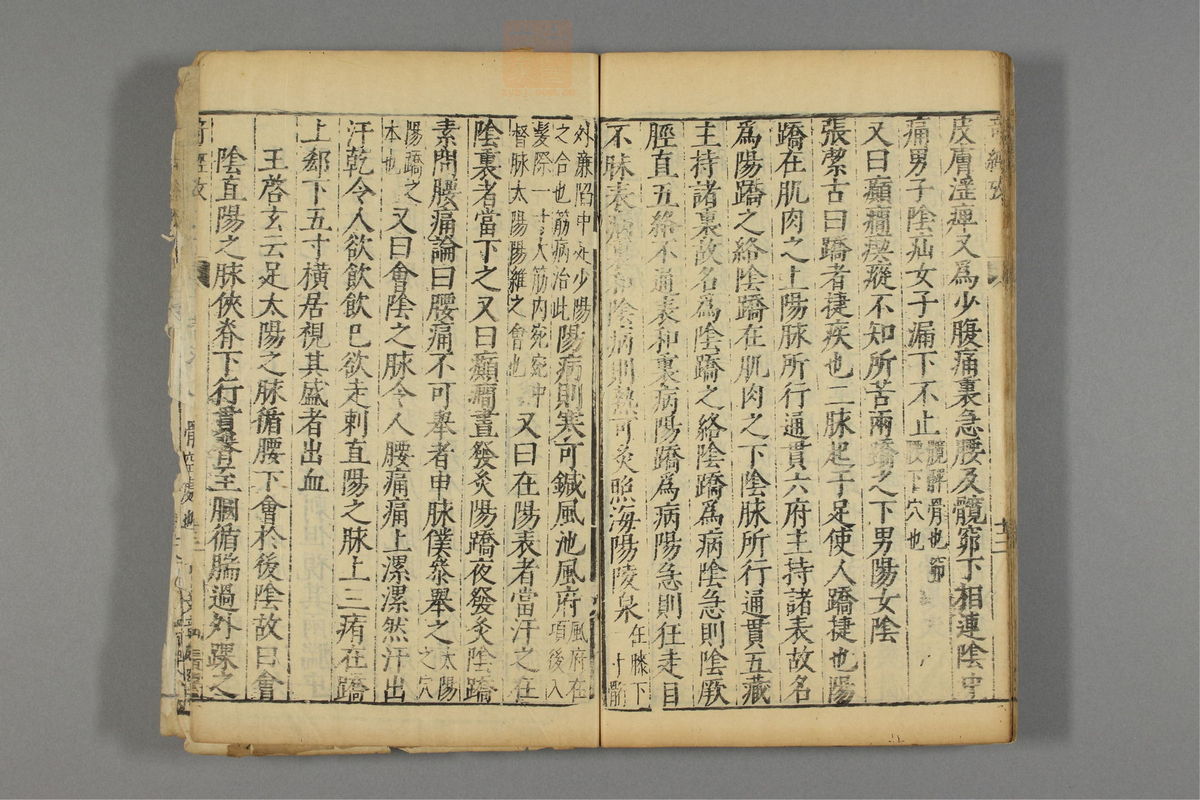 皮膚淫痺又為少腹痛裏急腰及髖窌下相連陰中
痛男子陰疝女子漏下不止髖髀骨也窌腰下穴也
又曰癲癎瘈瘲不知所苦兩蹻之下男陽女陰
張潔古曰蹻者捷疾也二脉起于足使人蹻捷也陽
蹻在肌肉之上陽脉所行通貫六府主持諸表故名
為陽蹻之絡陰蹻在肌肉之下陰脉所行通貫五藏
主持諸裏故名為陰蹻之絡陰蹻為病陰急則陰厥
脛直五絡不通表和裏病陽蹻為病陽急則狂走目
不昧表病裏和陰病則熱可灸照海陽陵泉在膝下一寸䯒
外廉陷中足少陽之合也筋病治此陽病則寒可鍼風池風府風府在項後入髮際一寸大筋內宛宛中
督脉太陽陽維之會也又曰在陽表者當汗之在
陰裏者當下之又曰癲癎晝發灸陽蹻夜發灸陰蹻
素問腰痛論曰腰痛不可舉者申脉僕參舉之太陽之穴
陽蹻之本也又曰會陰之脉令人腰痛痛上漯漯然汗出
汗乾令人欲飲飲已欲走刺直陽之脉上三痏在蹻
上郄下五寸橫居視其盛者出血
王啓玄云足太陽之脉循腰下會於後陰故曰會
陰直陽之脉俠脊下行貫臀至膕循腨過外踝之